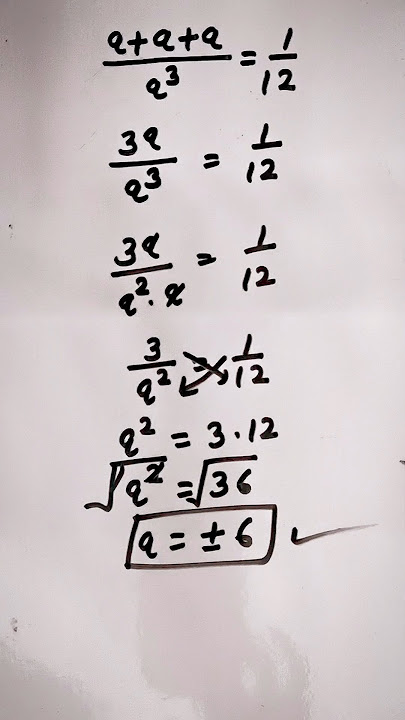 (a+a+a)/a³ = 1/12
3a/a³ = 1/12
3a/(a²·a) = 1/12
3/a² = 1/12
a² = 3·12
√a² = √36
a = ±6